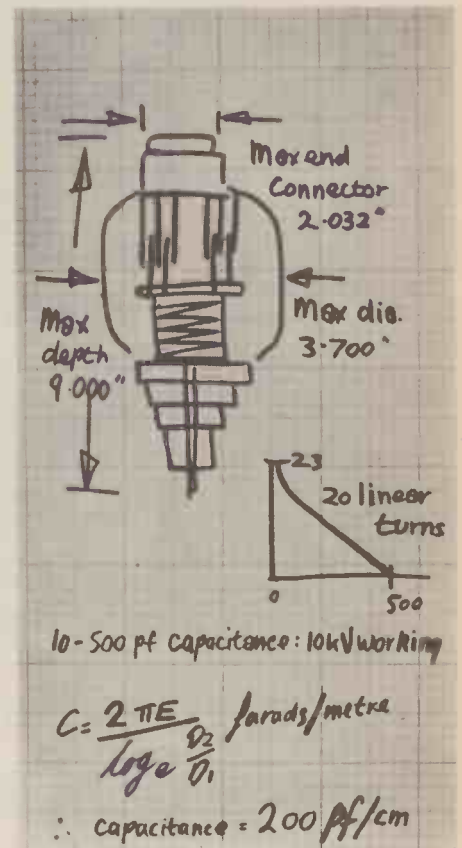 Max end
Connector
2.032"
Max
depth
9.000"
Max dia.
3.700"
23
20 linear
turns
0
500
10-500 pf capacitance: 10kV working
C = 2πE / log e D2/D1 farads/metre
∴ capacitance = 200 pf/cm